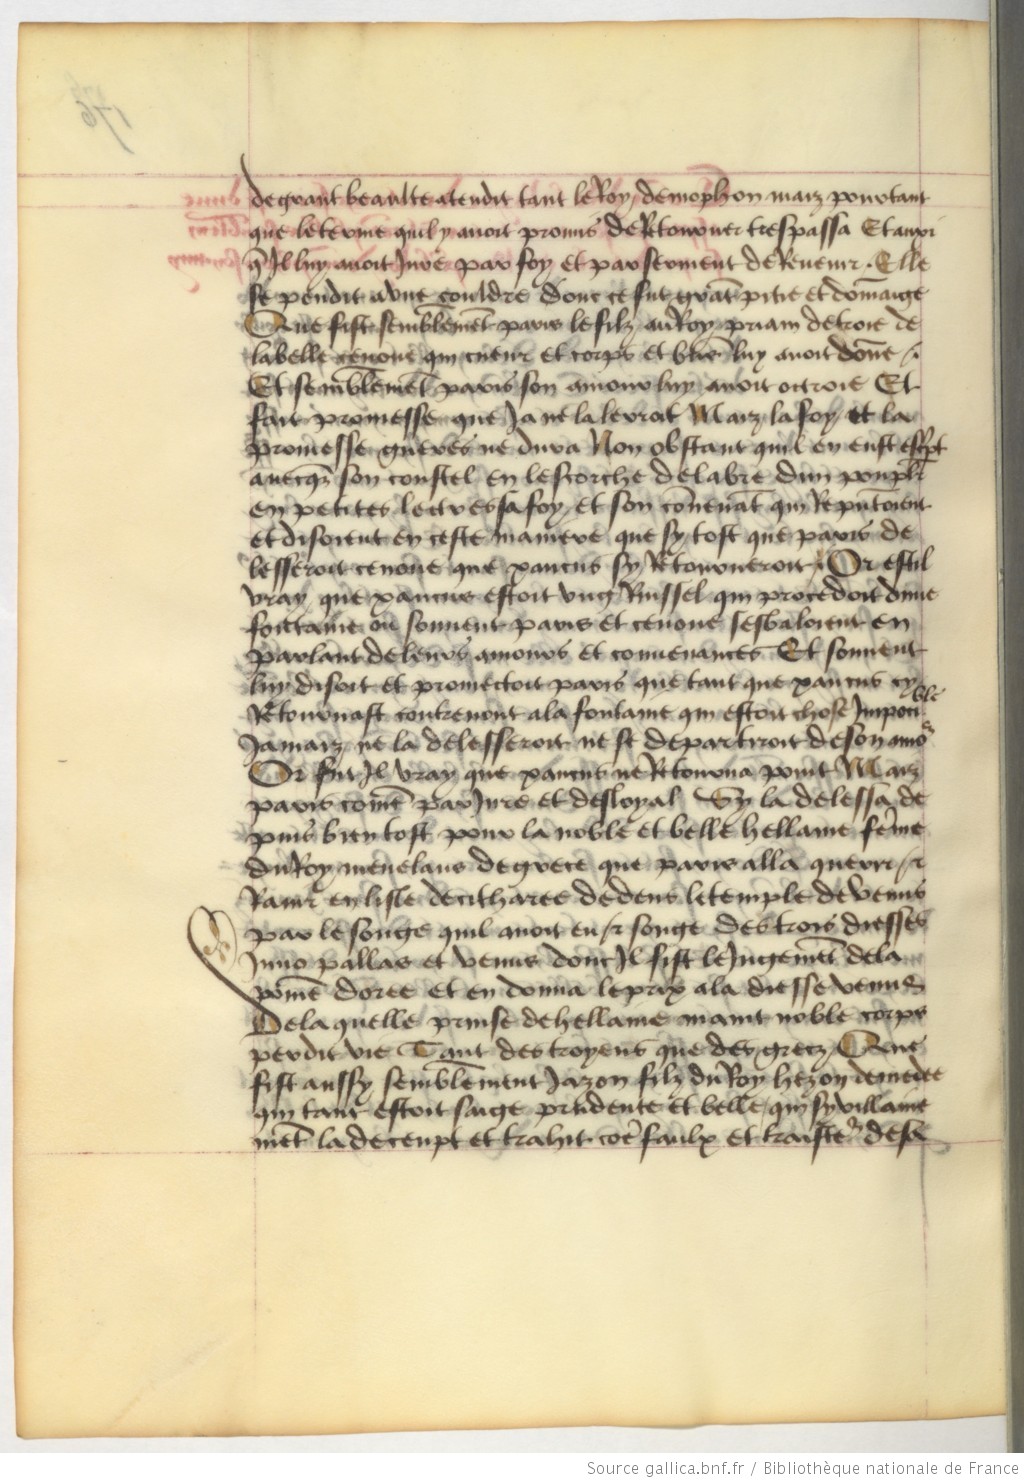 de grant beaulte atendit tant le Roy demophon maiz pourtant
que le terme quil y auoit promis de Retourner trespassa Et aussi
q̄ Il luy auoit Jure par foy et par serment de Reuenir . Elle
se pendit a vne couldre donc ce fut grāt pitie et dōmaige
Que fist semblemēt paris le filz au Roy priam de troie de
la belle cenone qui cueur et corps et luy auoit dōne
Et semblemēt paris son amour luy auoit octroie Et
fait promesse que Ja ne la leroit Maiz la foy et la
promesse gueres ne dura Non obstant quil en eust escpt
auecqz son coustel en lescorche de labre dun pouplr
en petites lectres sa foy et son cōuenāt qui Reputoient
et disoient en ceste maniere que sy tost que paris de
lesseroit cenone que xancus sy Retourneroit . Or est il
vray que xancus estoit vng Ruissel qui procedoit dune
fontaine ou souuent paris et cenone sesbaloient en
parlant de leurs amours et conuenances Et souuent
luy disoit et promectoit paris que tant que xancus cy
Retournast contremont a la fontaine qui estoit chose Impossible
Jamaiz ne la delesseroit ne se departiroit de son amor
Or fut Il vray que xancus ne Retourna point Maiz
paris comē pariure et desloyal Sy la delessa de
puis bien tost pour la noble et belle hellaine fēme
du Roy menelaus de grece que paris alla querir et
Rauir en lisle de citharee dedens le temple de venus
par le songe quil auoit eu et songe des trois deesses
Juno pallas et venus donc Il fist le Jugemēt de la
pōme doree et en donna le prix a la deesse venus
De la quelle prinse de hellaine maint noble corps
perdit vie Tant des troyens que des grecz Que
fist aussy semblemment Jazon filz du Roy hezon de medee
qui tant estoit saige prudente et belle qui sy villaine
mēt la deceupt et trahit cōe faulx et traistre de sa
Source gallica.bnf.fr / Bibliothèque nationale de France